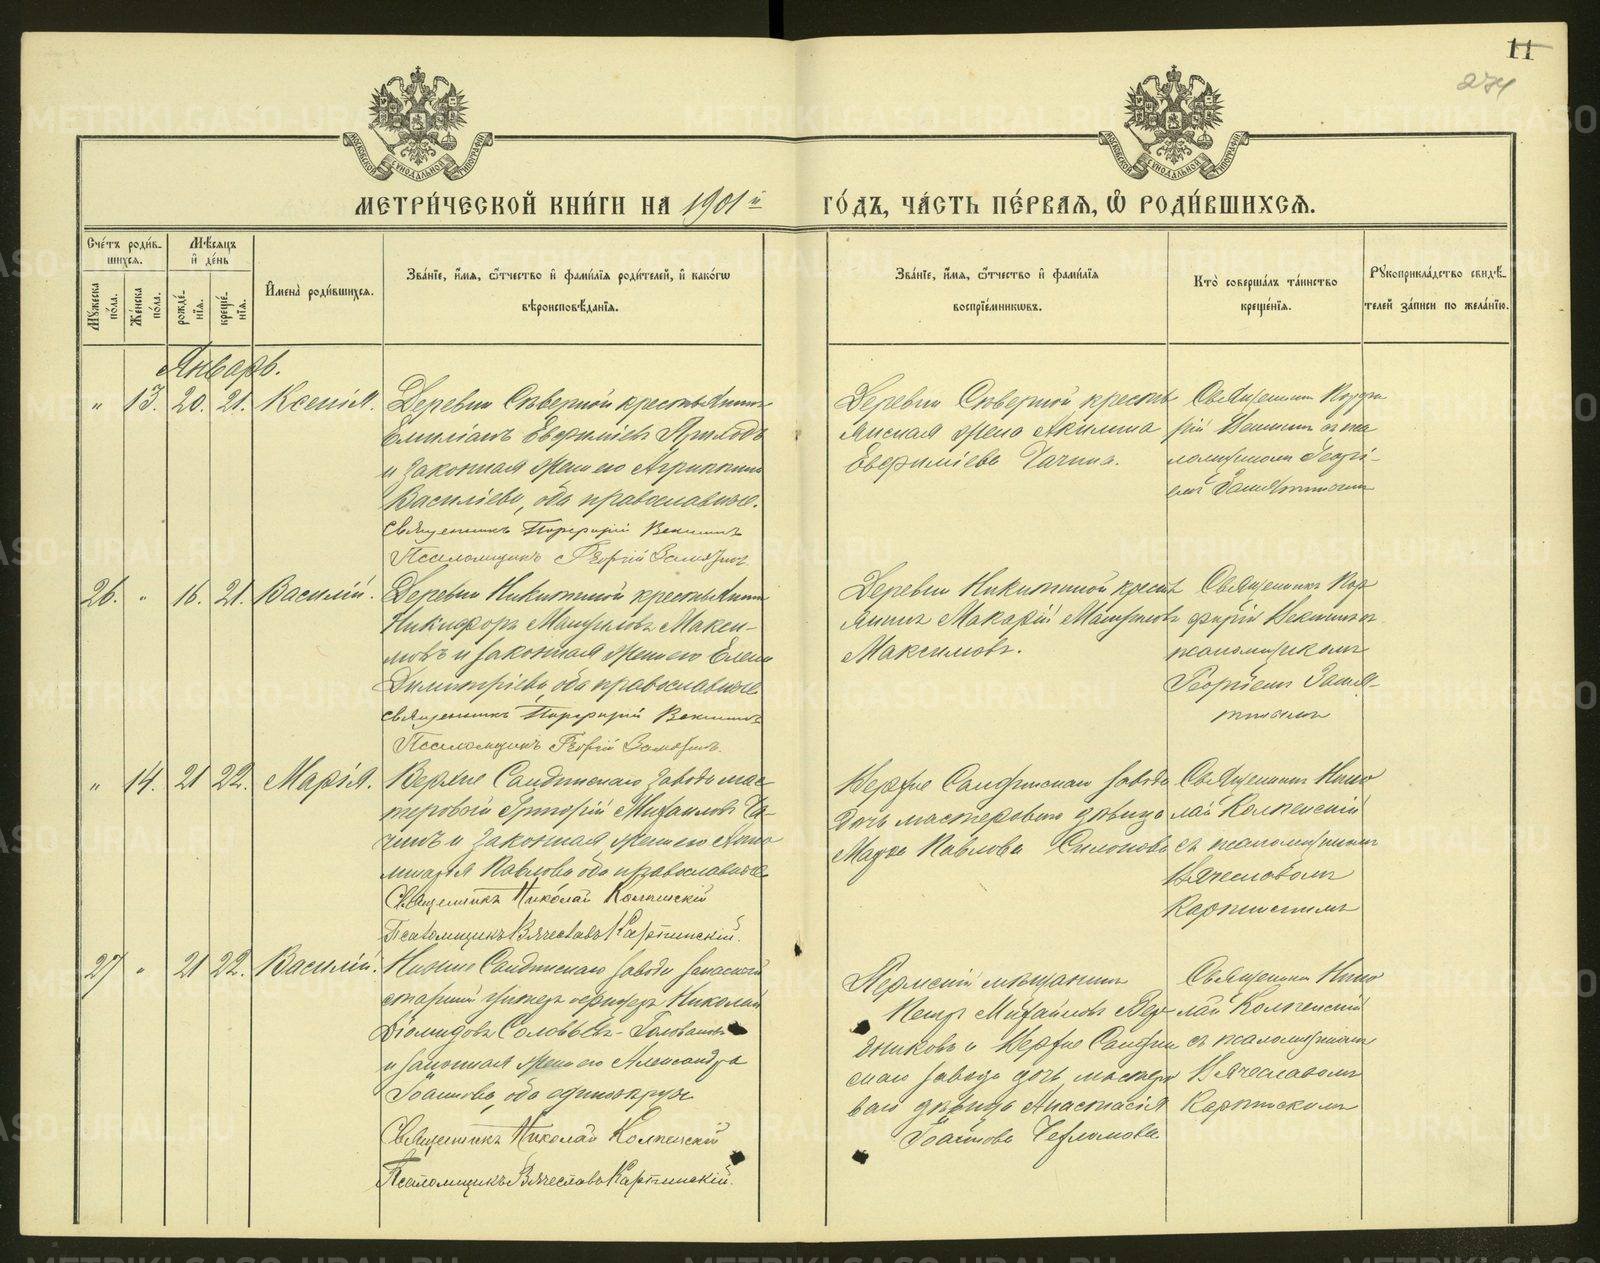 11
274
МОСКОВСКОЙ СѴНОДАЛЬНОЙ ТИПОГРАФІИ
МОСКОВСКОЙ СѴНОДАЛЬНОЙ ТИПОГРАФІИ
МЕТРИ́ЧЕСКОЙ КНИ́ГИ НА 1901 й
ГО́ДЪ, ЧА́СТЬ ПЕ́РВАЯ, Ѡ РОДИ́ВШИХСЯ.
Сче́тъ роди́в-
шихся.
Мѣ́сяцъ
и де́нь
Мꙋ́жеска по́ла.
Же́нска по́ла.
рожде́-нїѧ.
креще́-нїѧ.
И҆мена̀ роди́вшихсѧ.
Зва́нїе, и҆́мѧ, ѻ҆́тчество и҆ фами́лїѧ роди́телей, и҆ како́гѡ
вѣроисповѣ́данїѧ.
Зва́нїе, и҆́мѧ, ѻ҆́тчество и҆ фами́лїѧ
воспрїе́мникѡвъ.
Кто̀ соверша́лъ та́инство
креще́нїѧ.
Рꙋкоприкла́дство свидѣ́-
телей за́писи по жела́нїю.
Январь.
" 13. 20. 21. Ксенія.
Деревни Сѣверной крестьянинъ
Емиліанъ Евфиміевъ
и законная жена его Агриппина
Василіева, оба православные.
Священникъ Порфирій Векшинъ
Псаломщикъ Георгій Замятинъ
Деревни Сѣверной кресть
янская жена Акилина
Евфиміева Гачина.
Священникъ Порфи
рій Векшинъ съ пса
ломщикомъ Георгі-
емъ Замятинымъ
26. " 16. 21. Василій.
Деревни Никитиной крестьянинъ
Никифоръ Мануиловъ Макси-
мовъ и законная жена его Елена
Димитріева, оба православные.
Священникъ Порфирій Векшинъ
Псаломщикъ Георгій Замятинъ.
Деревни Никитиной кресть
янинъ Макарій Мануиловъ
Максимовъ.
Священникъ Пор
фирій Векшинъ съ
псаломщикомъ
Георгіемъ Замя-
тинымъ
" 14. 21 22. Марія.
Верхне Салдинскаго завода мас
теровой Григорій Михаиловъ Га-
чинъ и законная жена его
Павлова оба православные
Священникъ Николай Колпенскій
Псаломщикъ Вячеславъ Карпинскій.
Верхне Салдинскаго завода
дочь мастероваго дѣвица
Павлова
Священникъ Нико
лай Колпенскій
съ псаломщикомъ
Вячеславомъ
Карпинскимъ
27 " 21 22. Василій.
Нижне Салдинскаго завода запасной
старшій унтеръ офицеръ Николай
Діомидовъ Соловьевъ-Голованов
и законная жена его Александра
Іоаннова, оба единовѣрцы
Священникъ Николай Колпенскій
Псаломщикъ Вячеславъ Карпинскій.
Пермскій мѣщанинъ
Петръ Михайловъ Вер
дниковъ и Верхне Салдин
скаго завода дочь мастеро
ваго дѣвица Анастасія
Іоаннова
Священникъ Нико
лай Колпенскій
съ псаломщикомъ
Вячеславомъ
Карпинскимъ
METRIKI.GASO-URAL.RU